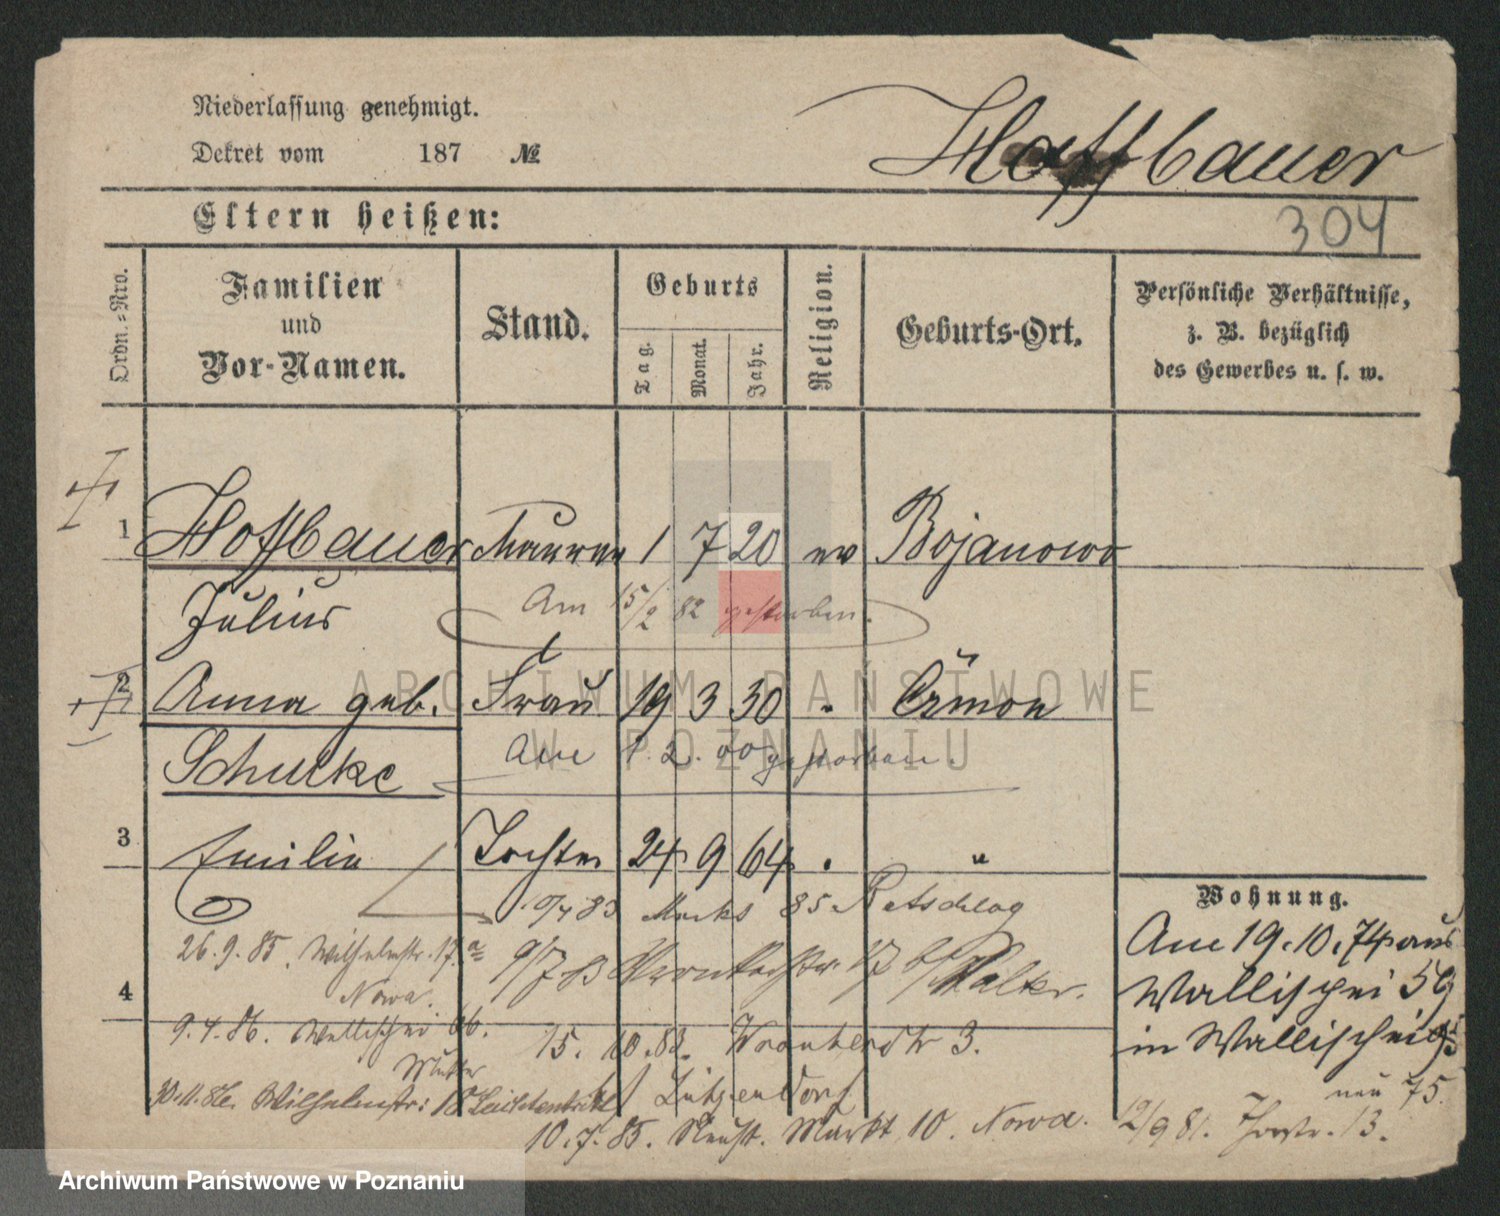 Niederlassung genehmigt.
Dekret vom 187 №
Hoffbauer
304
Eltern heißen:
Ordn.-Nro.
Familien
und
Vor-Namen.
Stand.
Geburts
Tag.
Monat.
Jahr.
Religion.
Geburts-Ort.
Persönliche Verhältnisse,
z. B. bezüglich
des Gewerbes u. s. w.
1 Hoffbauer Maurer 1 7 20 ev Bojanowo
Julius
Am 15/2 82 gestorben.
2 Anna geb. Frau 19 3 30 "
Schulke
Am 1. 2. 00 gestorben.
3 Emilie Tochter 24 9 64 " "
83 Markt 85
Wohnung.
Am 19. 10. 74 aus
Wallischei 59
in Wallischei
neu 75.
12/9 81. Thorstr. 13.
26. 9. 85. Wilhelmstr. 17.a
Nowa.
9/7 83 17 b/
4
9. 4. 86. Wallischei 66.
Mutter
15. 10. 83. 3.
30. 11. 86. Wilhelmstr: 18
b/ Lützendorf
10. 7. 85. Neust. Markt 10. Nowa.
ARCHIWUM PAŃSTWOWE
W POZNANIU
Archiwum Państwowe w Poznaniu